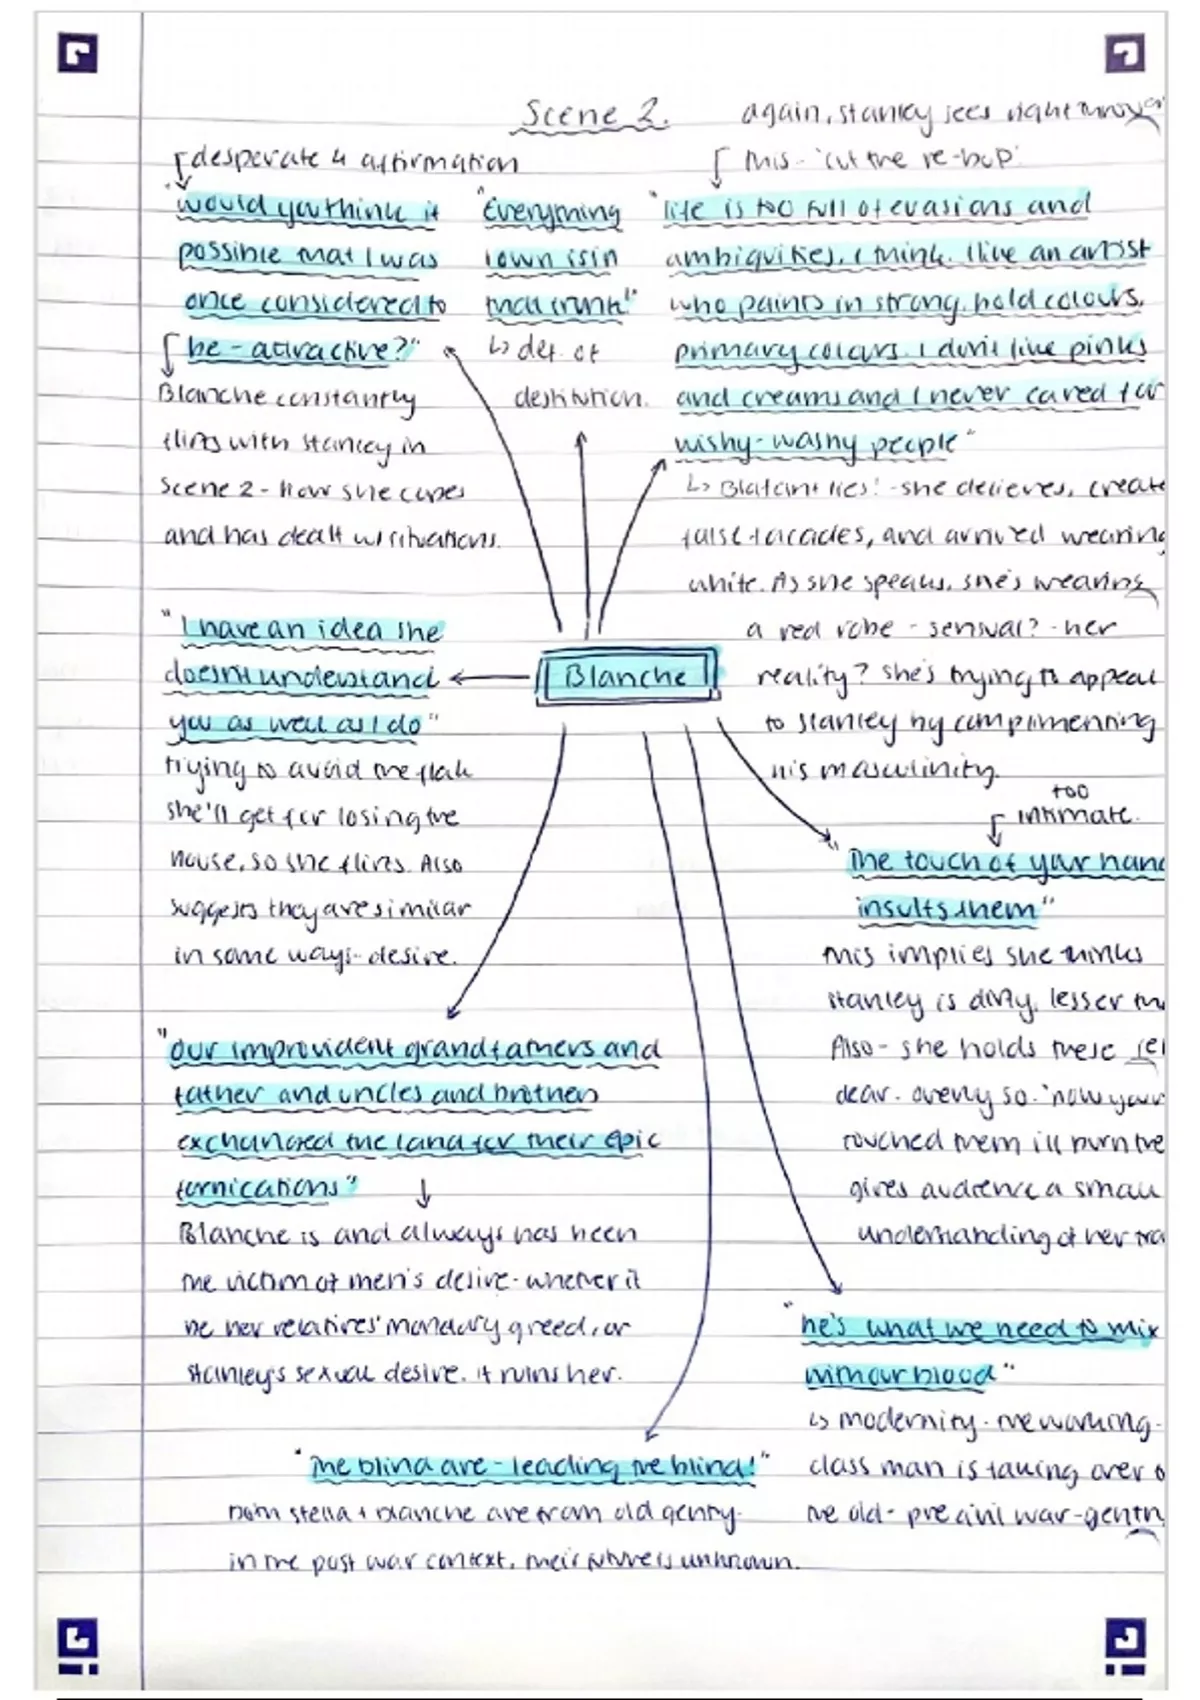 Scene 2.
again, stanley sees right through
this - 'cut the re-bop'
desperate 4 affirmation
"would you think it
possible that I was
once considered to
be - attractive?"
Blanche constantly
flirts with stanley in
scene 2 - how she copes
and has dealt w/ situations.
"Everything
I own is in
that trunk"
↳ def. of
destitution.
"life is too full of evasions and
ambiguities, I think. I like an artist
who paints in strong, bold colours,
primary colours. I don't like pinks
and creams and I never cared for
wishy-washy people"
↳ Blatant lies! - she decieves, create
false facades, and arrived wearing
white. As she speaks, she's wearing
a red robe - sensual? - her
reality? she's trying to appeal
to stanley by complimenting
his masculinity.
Blanche
"I have an idea she
doesn't understand
you as well as I do"
trying to avoid the flak
she'll get for losing the
house, so she flirts. Also
suggests they are similar
in some ways - desire.
too
intimate.
"The touch of your hand
insults them"
this implies she thinks
stanley is dirty, lesser
Also - she holds these
dear. overly so. 'now your
touched them ill burn the
gives audience a small
understanding of her
"our improvident grandfathers and
father and uncles and brothers
exchanged the land for their epic
fornications"
Blanche is and always has been
the victim of men's desire - whether it
be her relatives' mondary greed, or
stanley's sexual desire. it ruins her.
"he's what we need to mix
with our blood"
↳ modernity - the working -
class man is taking over
the old - pre civil war - gentry
"The blind are - leading the blind!"
both stella + blanche are from old gentry.
in the post war context, their future is unknown.